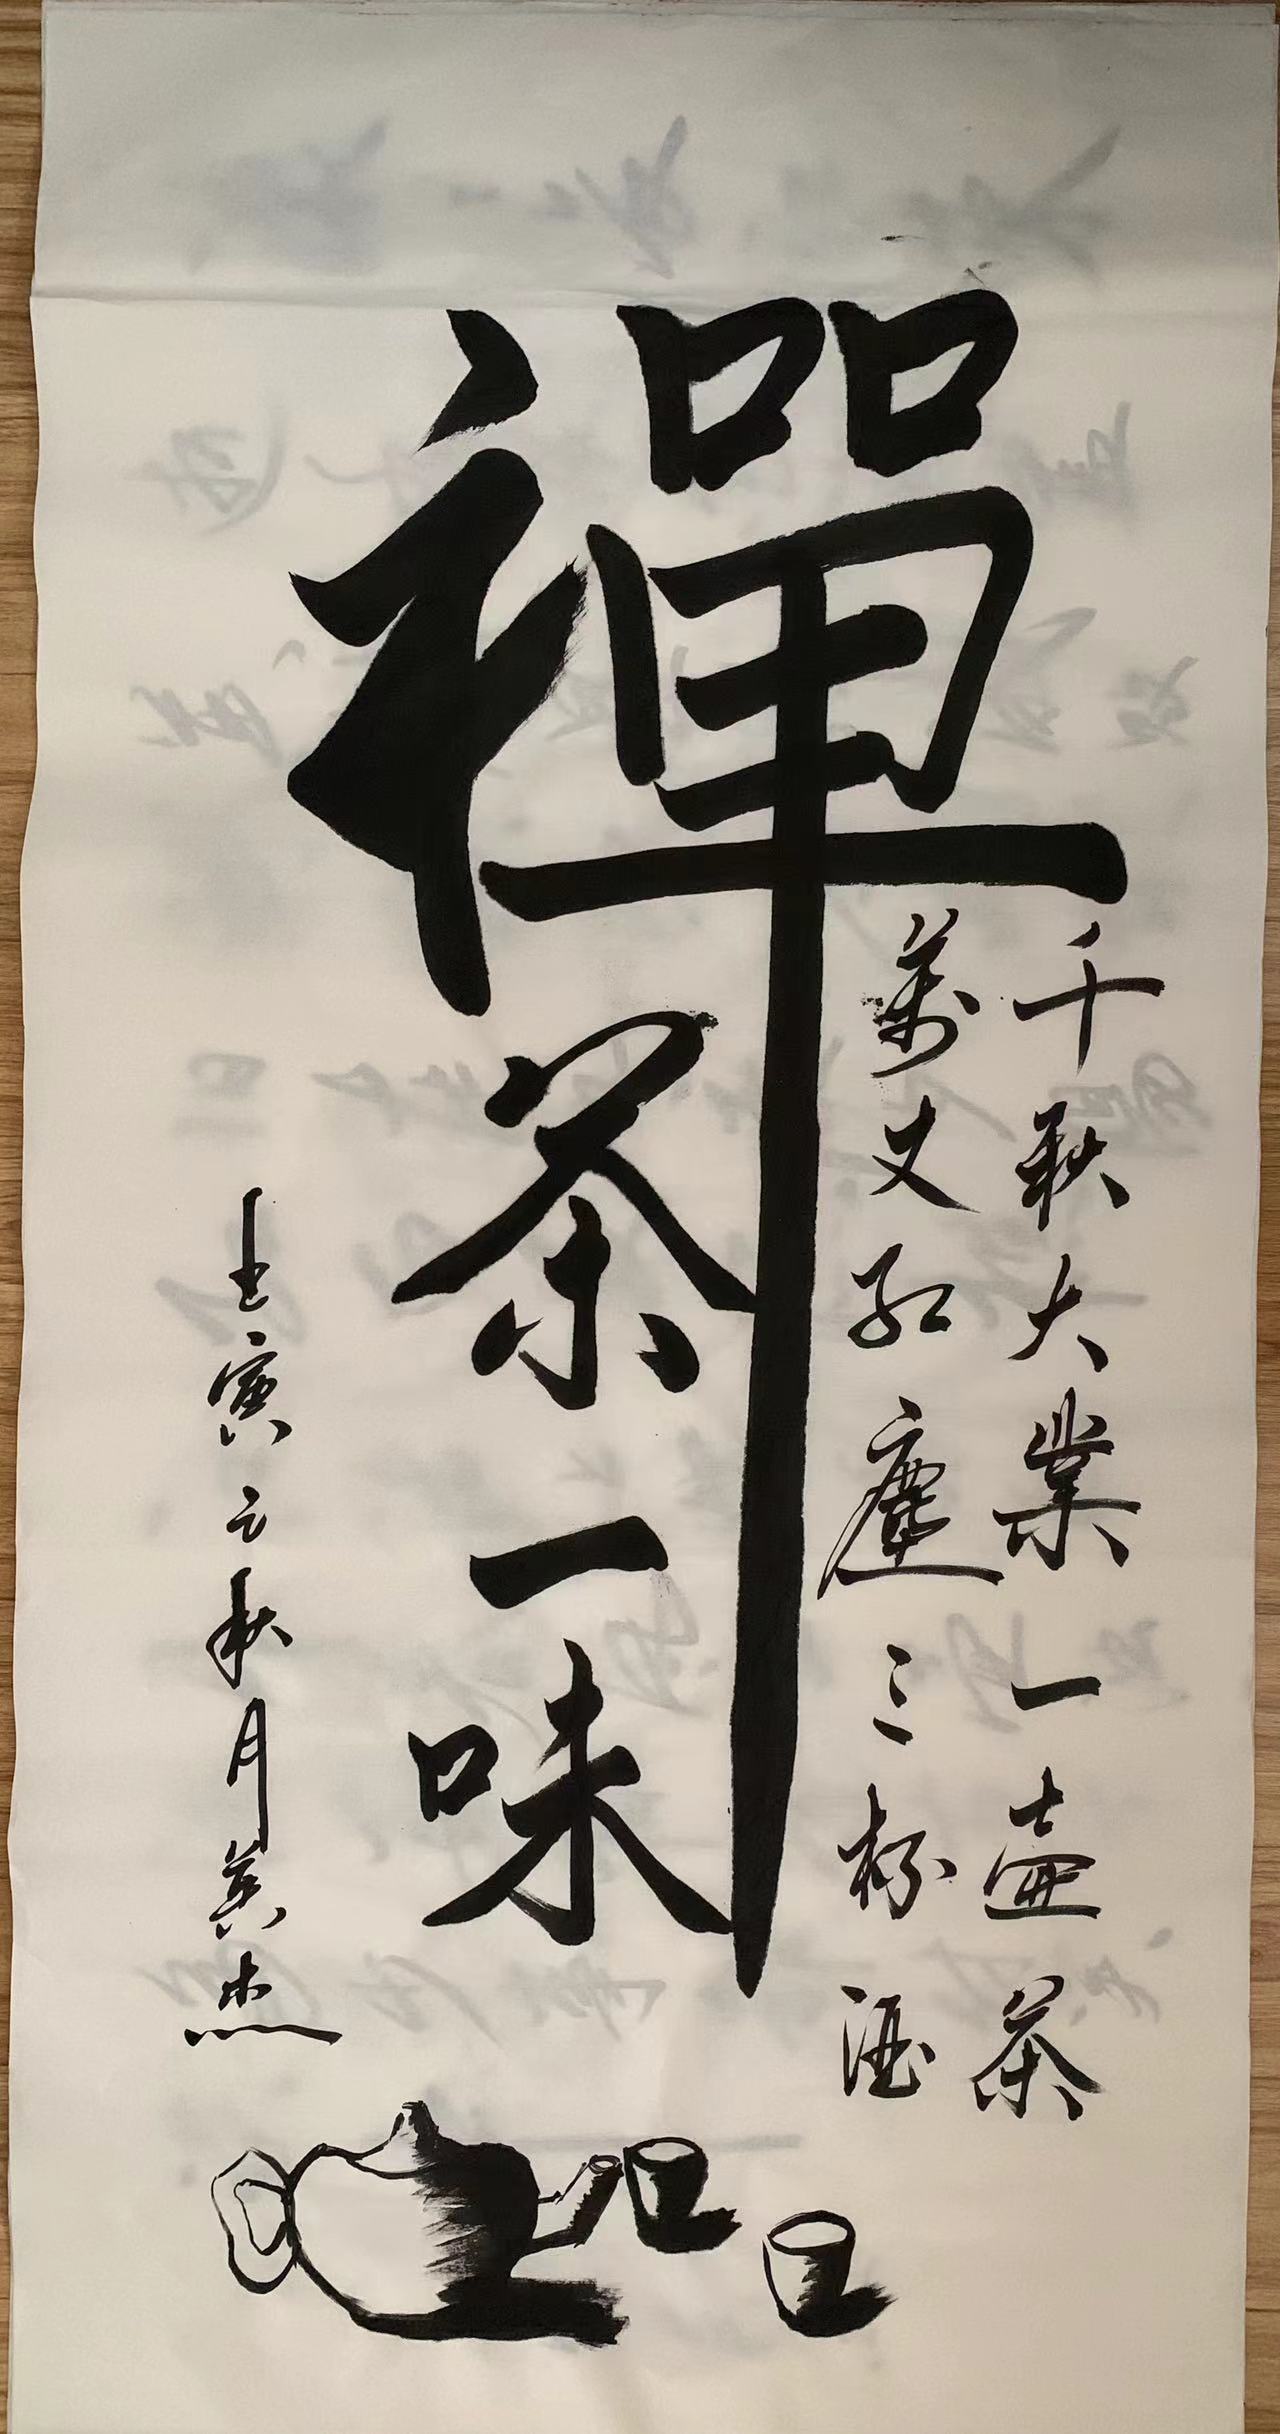 禪茶一味
千秋大業一壺茶
萬丈紅塵三杯酒
壬寅之秋月英杰